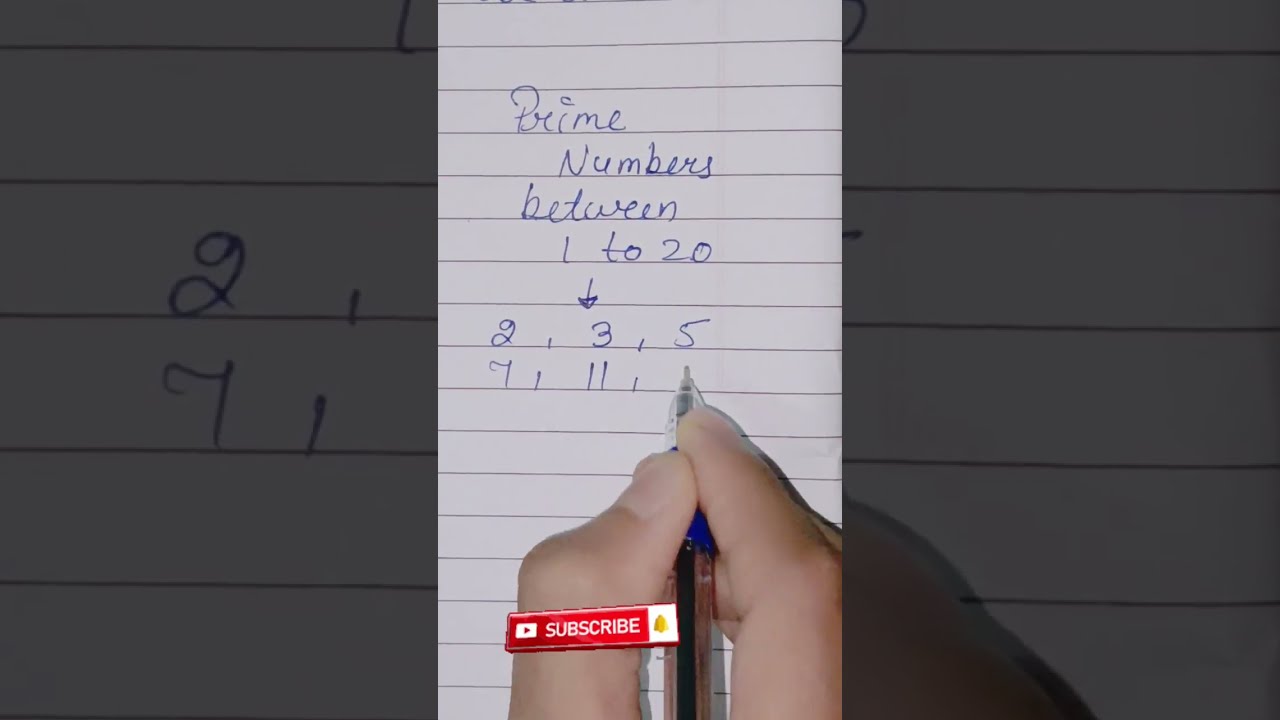 Prime
Numbers
between
1 to 20
2, 3, 5
7, 11,
SUBSCRIBE